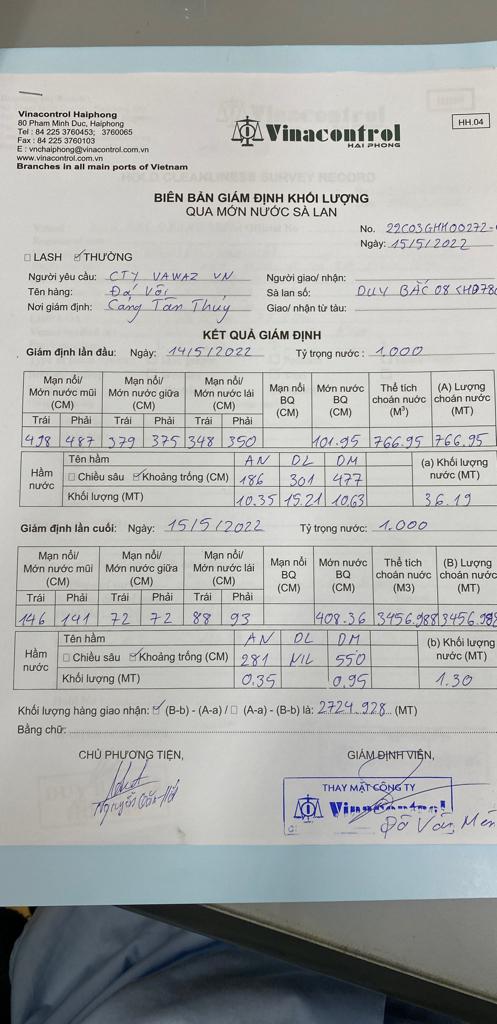 Vinacontrol Haiphong
80 Pham Minh Duc, Haiphong
Tel : 84 225 3760453; 3760065
Fax : 84 225 3760103
E : vnchaiphong@vinacontrol.com.vn
www.vinacontrol.com.vn
Branches in all main ports of Vietnam
Vinacontrol
HAI PHONG
HH.04
BIÊN BẢN GIÁM ĐỊNH KHỐI LƯỢNG
QUA MỚN NƯỚC SÀ LAN
No. 29C03GHH00272-
Ngày: 15/5/2022
LASH THƯỜNG
Người yêu cầu: CTY VAWAZ VN Người giao/ nhận:
Tên hàng: Đá Vôi Sà lan số: DUY BẮC 08
Nơi giám định: Cảng Tân Thúy Giao/ nhận từ tàu:
KẾT QUẢ GIÁM ĐỊNH
Giám định lần đầu: Ngày: 14/5/2022 Tỷ trọng nước : 1.000
Mạn nổi/ Mớn nước mũi (CM) Mạn nổi/ Mớn nước giữa (CM) Mạn nổi/ Mớn nước lái (CM) Mạn nổi BQ (CM) Mớn nước BQ (CM) Thể tích choán nước (M³) (A) Lượng choán nước (MT)
Trái Phải Trái Phải Trái Phải
498 487 379 375 348 350 101.95 766.95 766.95
Hầm nước Tên hầm AN DL DM (a) Khối lượng nước (MT)
Chiều sâu Khoảng trống (CM) 186 301 477
Khối lượng (MT) 10.35 15.21 10.63 36.19
Giám định lần cuối: Ngày: 15/5/2022 Tỷ trọng nước: 1.000
Mạn nổi/ Mớn nước mũi (CM) Mạn nổi/ Mớn nước giữa (CM) Mạn nổi/ Mớn nước lái (CM) Mạn nổi BQ (CM) Mớn nước BQ (CM) Thể tích choán nước (M3) (B) Lượng choán nước (MT)
Trái Phải Trái Phải Trái Phải
146 141 72 72 88 93 408.36 3456.988 3456.988
Hầm nước Tên hầm AN DL DM (b) Khối lượng nước (MT)
Chiều sâu Khoảng trống (CM) 281 NIL 550
Khối lượng (MT) 0.35 0.95 1.30
Khối lượng hàng giao nhận: (B-b) - (A-a) / (A-a) - (B-b) là: 2724.928 (MT)
Bằng chữ:
CHỦ PHƯƠNG TIỆN, GIÁM ĐỊNH VIÊN,
THAY MẶT CÔNG TY
Vinacontrol
Nguyễn Văn
Đỗ Văn